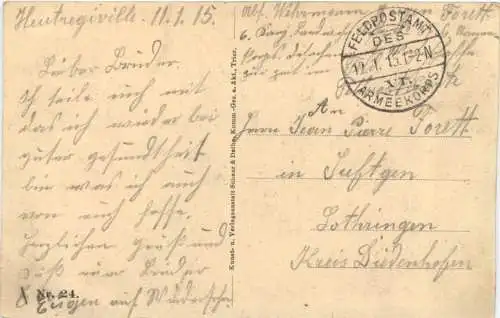 Heutregiville, 11.1.15.
Lieber Bruder.
Ich teile euch mit
das ich wieder bei
guter gesundtheit
bin was ich auch
von euch hoffe.
Herzlichen gruß und
Kuß euer Bruder
Eugen auf Wiedersehn
Nr. 24.
Kunst- u. Verlagsanstalt Schaar & Dathe, Komm.-Ges. a. Akt., Trier.
Abs. Wehrmann Forett
6.
FELDPOSTAMT
DES
12.1.15. 1-2N
VI.
ARMEEKORPS
An
Herrn Jean Pierre Forett
in Suftgen
Lothringen
Kreis Diedenhofen